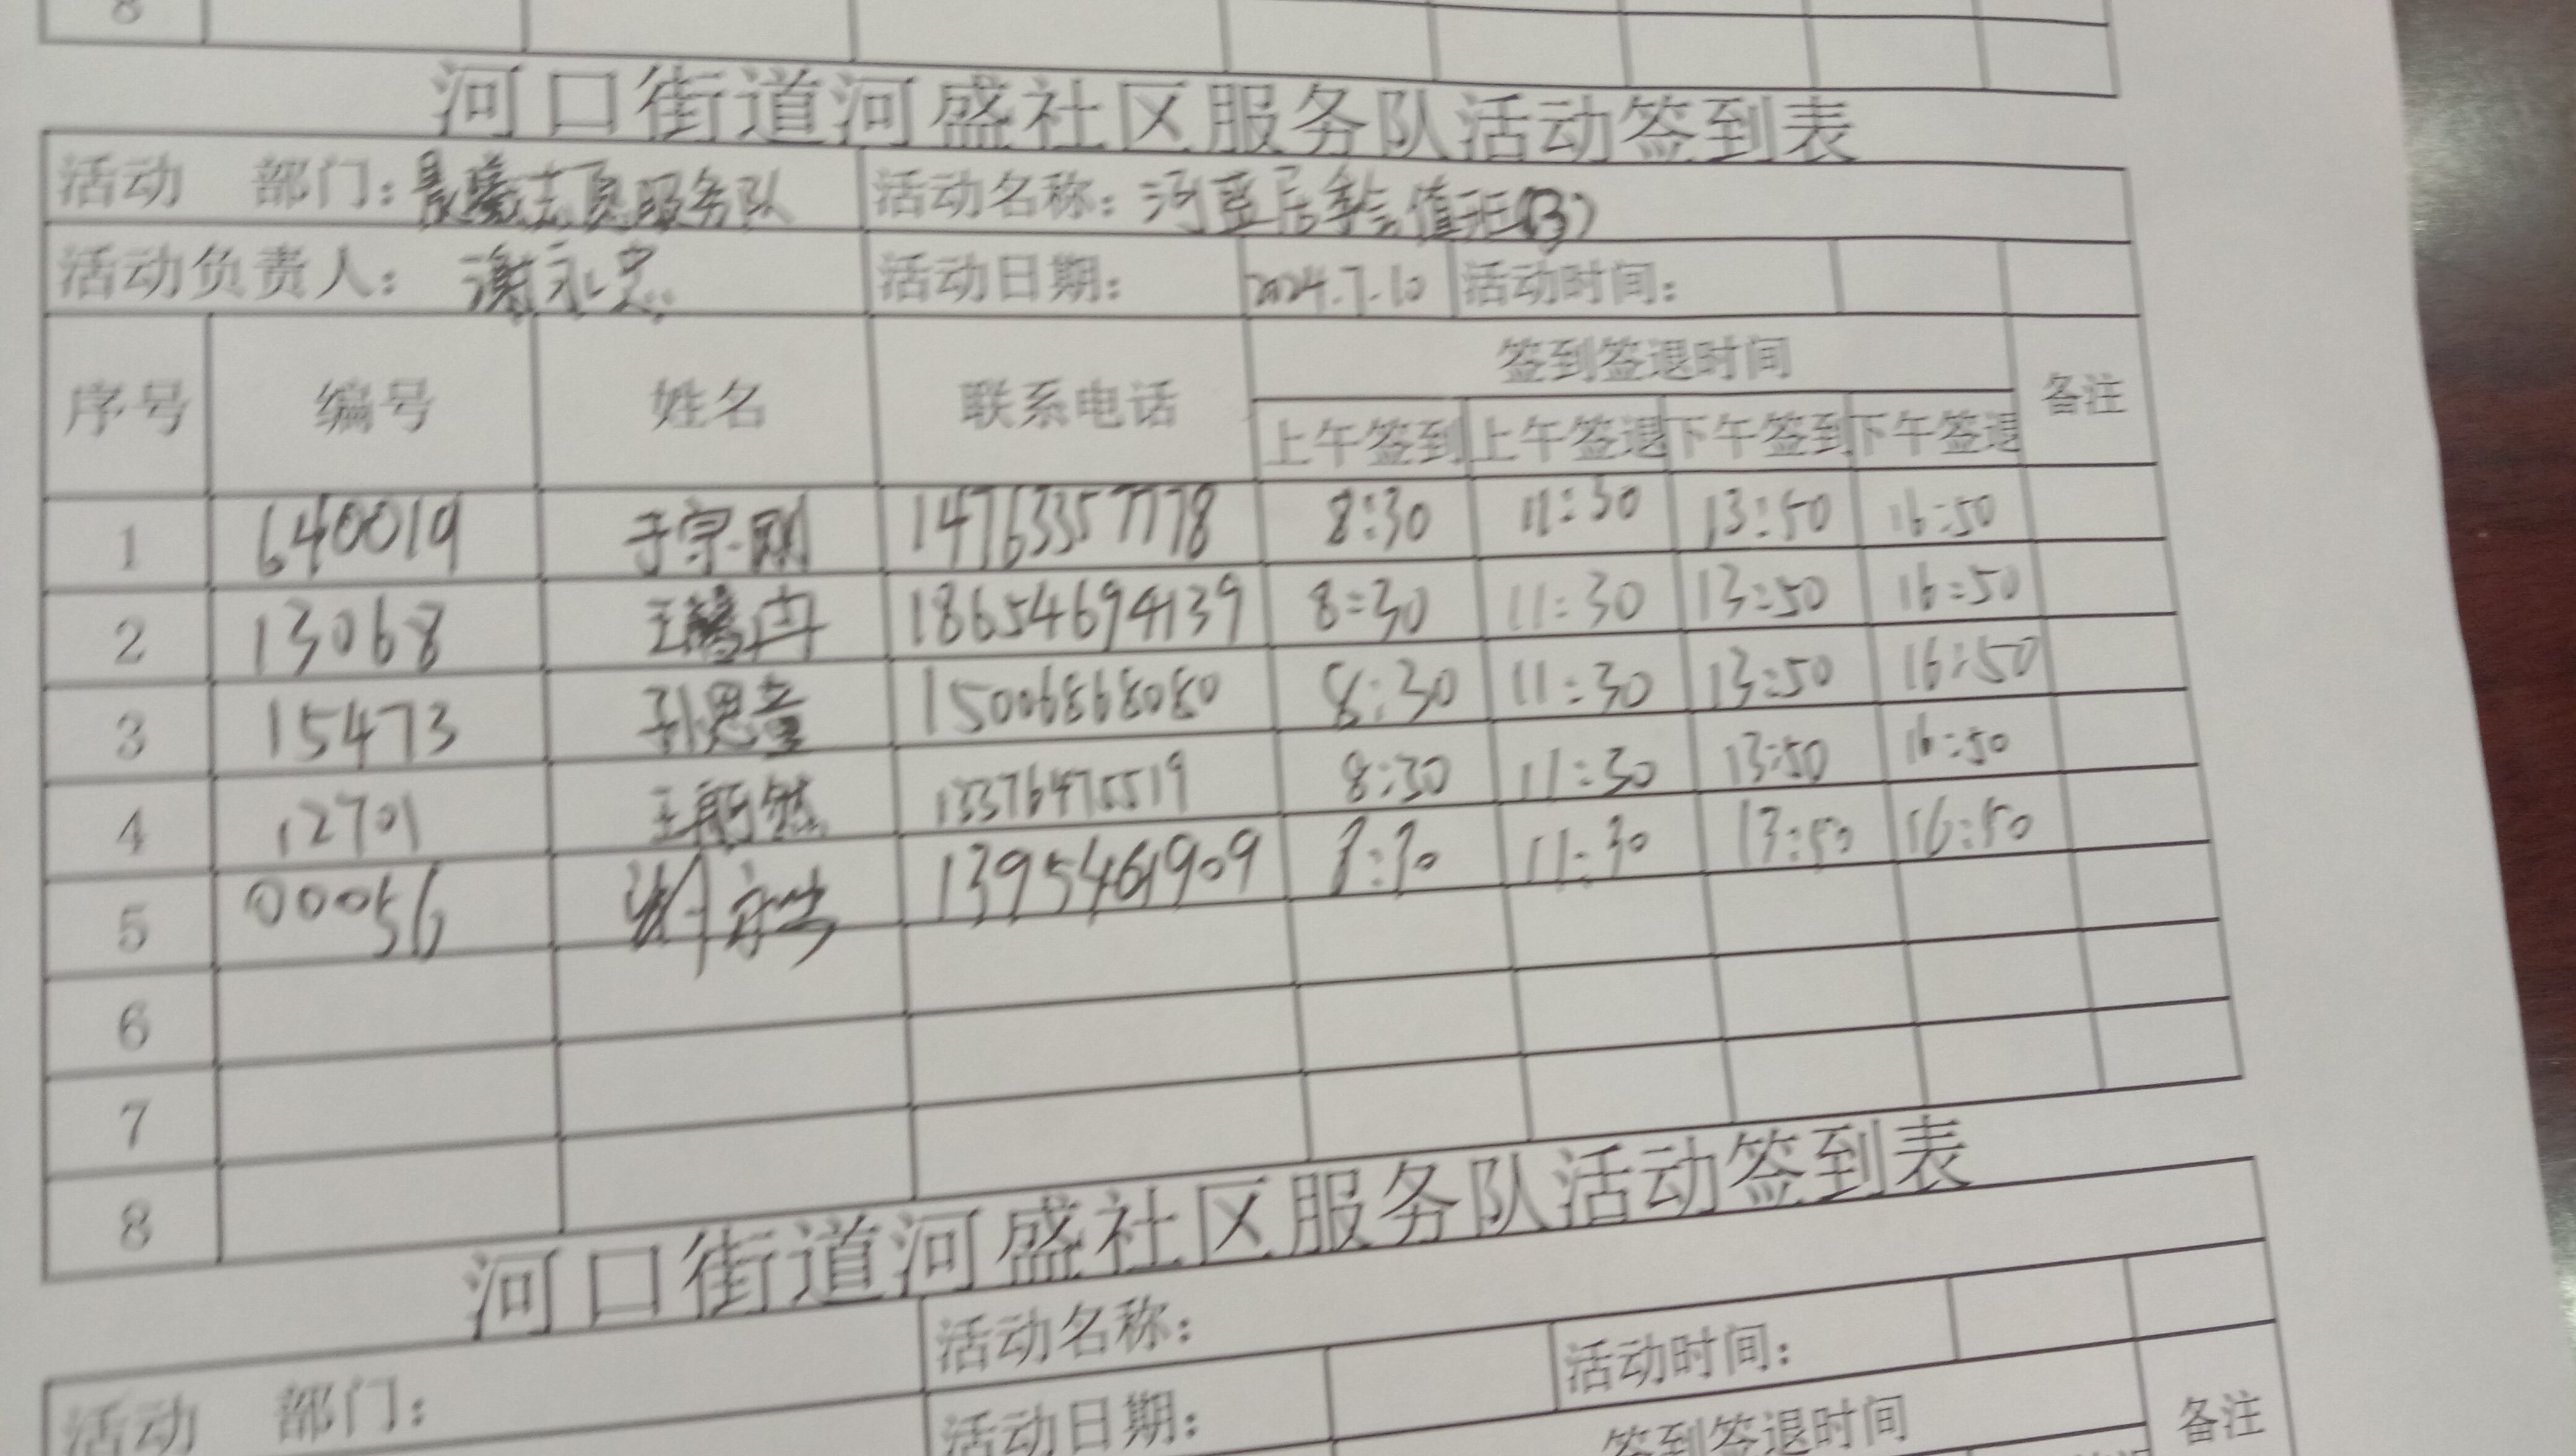 8
河口街道河盛社区服务队活动签到表
活动 部门: 晨曦志愿服务队 活动名称: 河盛居委会值班(3)
活动负责人: 谢永忠 活动日期: 2024.7.10 活动时间:
序号 编号 姓名 联系电话 签到签退时间 备注
上午签到 上午签退 下午签到 下午签退
1 640019 于宗刚 14763357778 8:30 11:30 13:50 16:50
2 13068 王冉 18654694139 8:30 11:30 13:50 16:50
3 15473 孙思童 15006868080 8:30 11:30 13:50 16:50
4 12701 王然 13376475519 8:30 11:30 13:50 16:50
5 00056 1395461909 8:30 11:30 13:50 16:50
6
7
8
河口街道河盛社区服务队活动签到表
活动 部门: 活动名称:
活动日期: 活动时间:
签到签退时间 备注